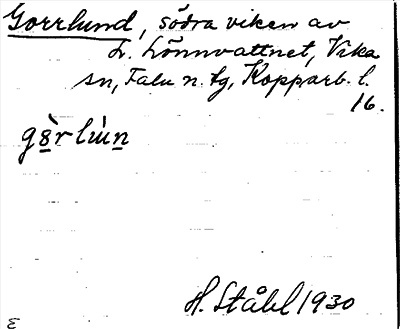 Gorrlund, södra viken av
L. Lönnvattnet, Vika
sn, Falu n. tg, Kopparb. l.
16.
gòrlun
H. Ståhl 1930